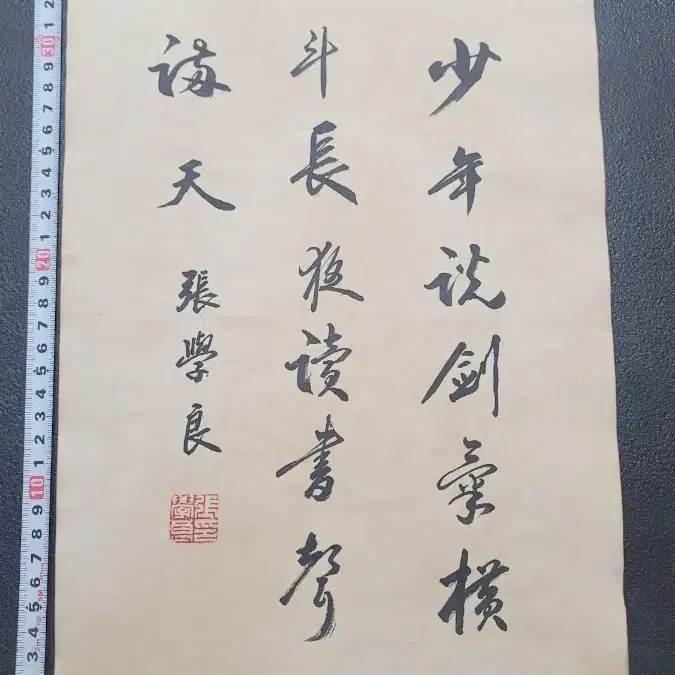 少年說劍氣橫
斗長夜讀書聲
滿天 張學良
張印學良
3 4 5 6 7 8 9 10 1 2 3 4 5 6 7 8 9 20 1 2 3 4 5 6 7 8 9 30 1 2